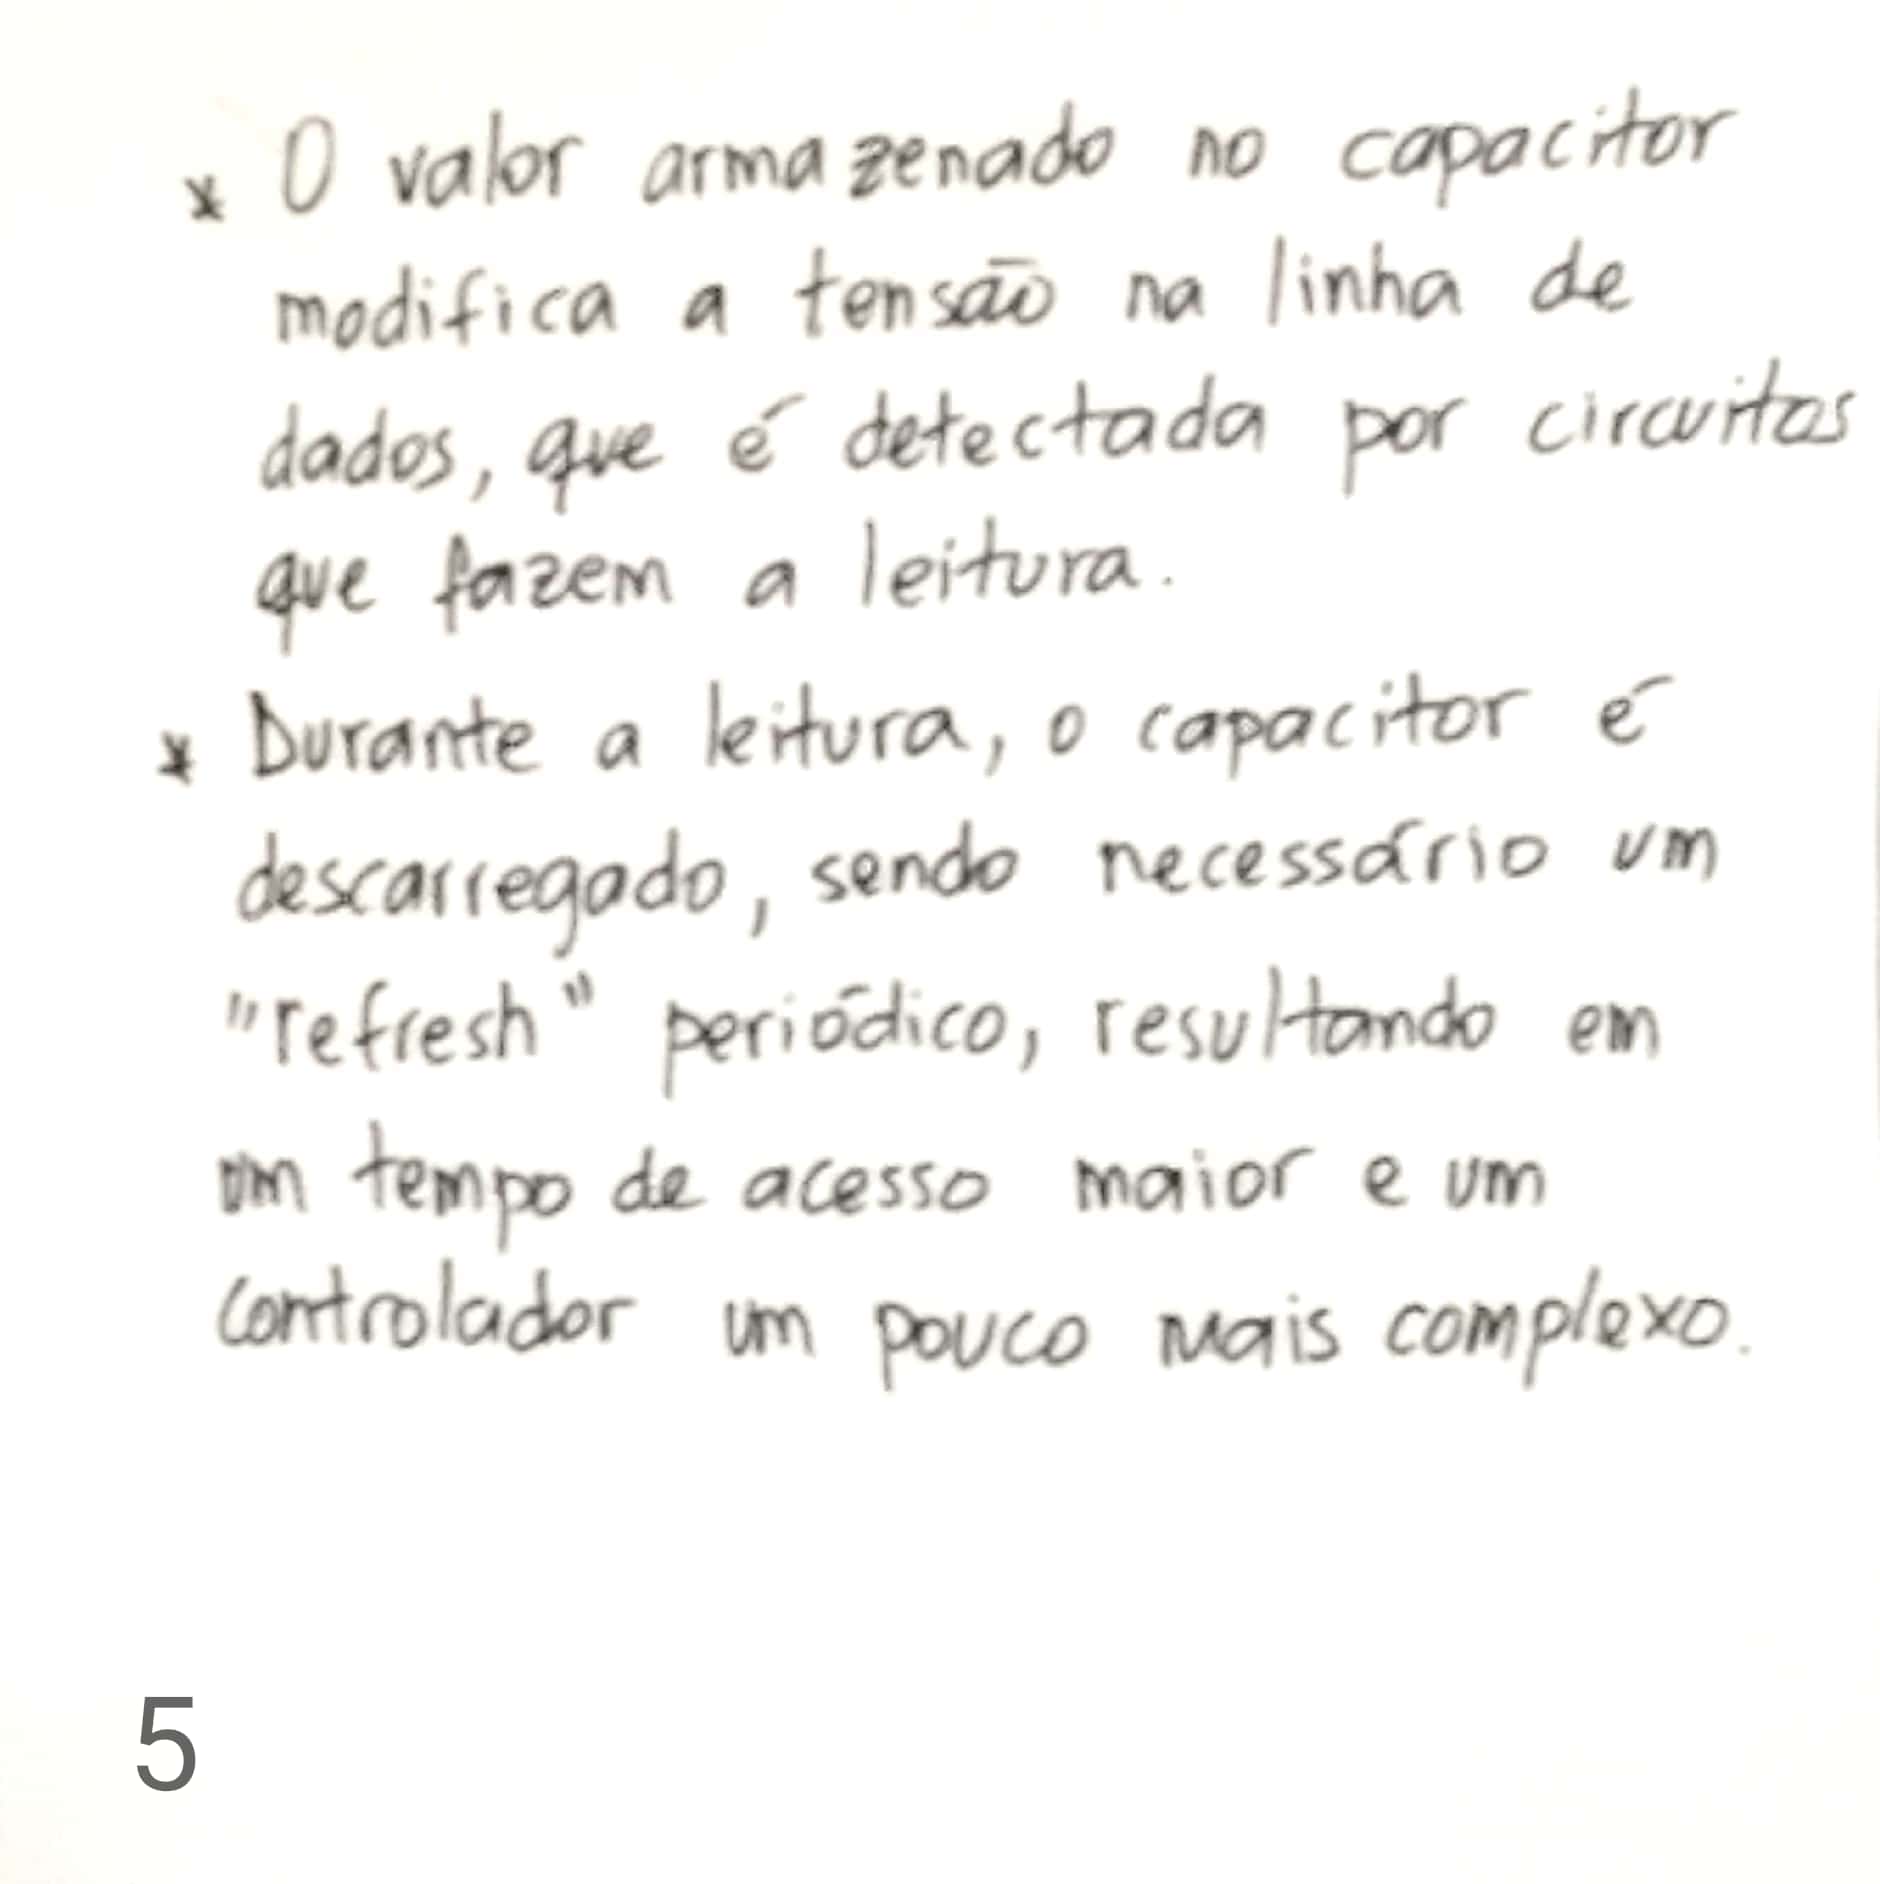 * O valor armazenado no capacitor
modifica a tensão na linha de
dados, que é detectada por circuitos
que fazem a leitura.
* Durante a leitura, o capacitor é
descarregado, sendo necessário um
"refresh" periódico, resultando em
um tempo de acesso maior e um
controlador um pouco mais complexo.
5